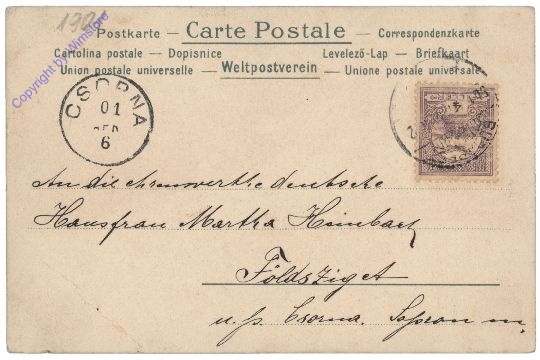 1921
Postkarte — Carte Postale — Correspondenzkarte
Cartolina postale — Dopisnice Levelező-Lap — Briefkaart
Union postale universelle — Weltpostverein — Unione postale universale
Copyright by Wimstore
CSORNA
01
6
An die ehrenwerthe deutsche
Hausfrau Martha Heimbach
Földsziget
u. p. Csorna. Sopron m.